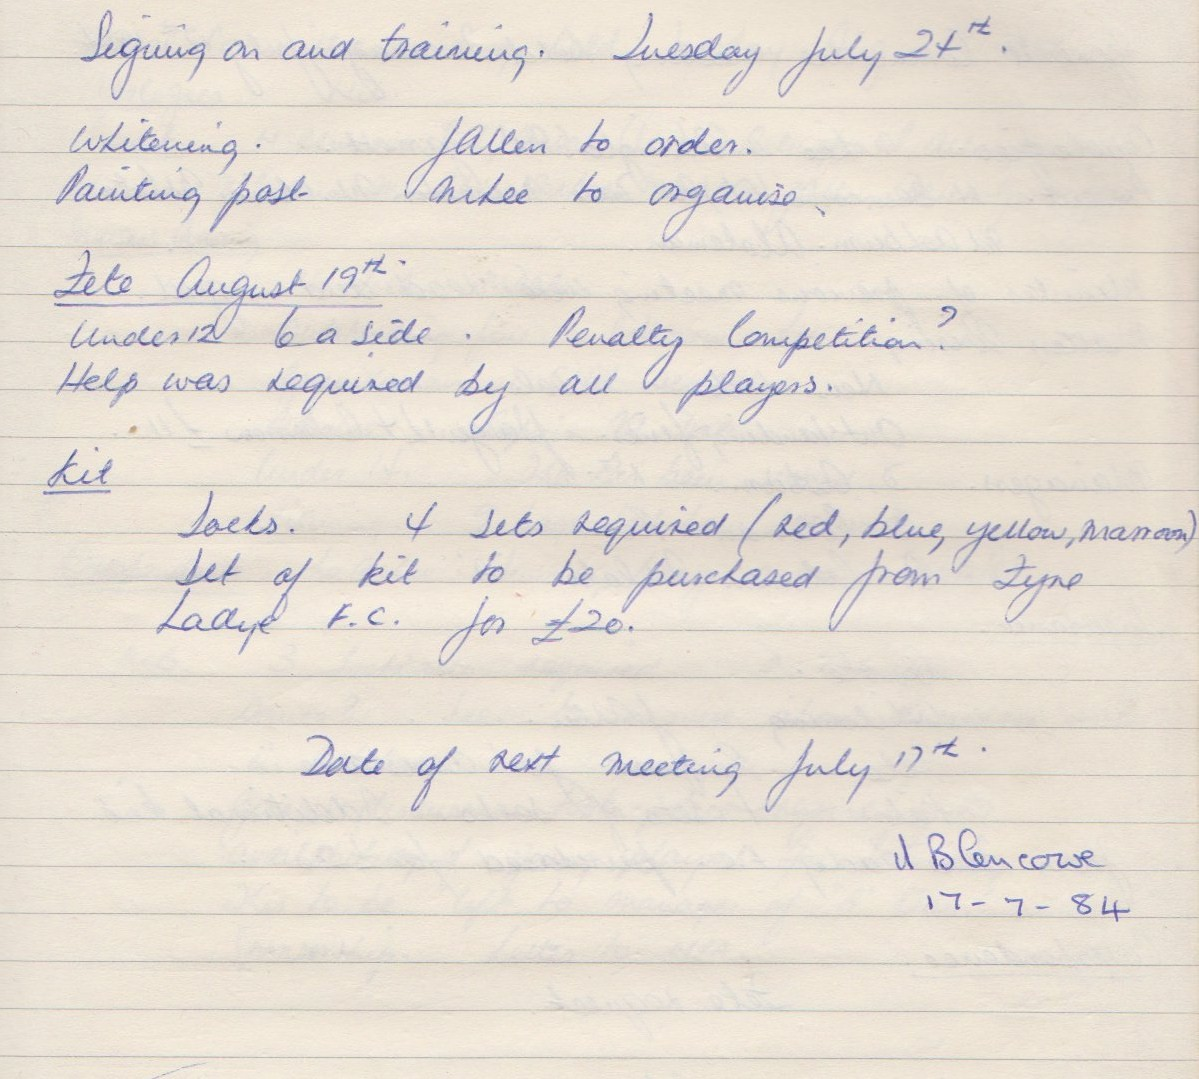 Signing on and training. Tuesday July 24th.
Whitening. J Allen to order.
Painting post to organise.
Fete August 19th.
Under 12 6 a side. Penalty Competition?
Help was required by all players.
Kit
Socks. 4 sets required (red, blue, yellow, marroon)
Set of kit to be purchased from Tyne
Ladye F.C. for £20.
Date of next meeting July 17th.
Blencowe
17-7-84